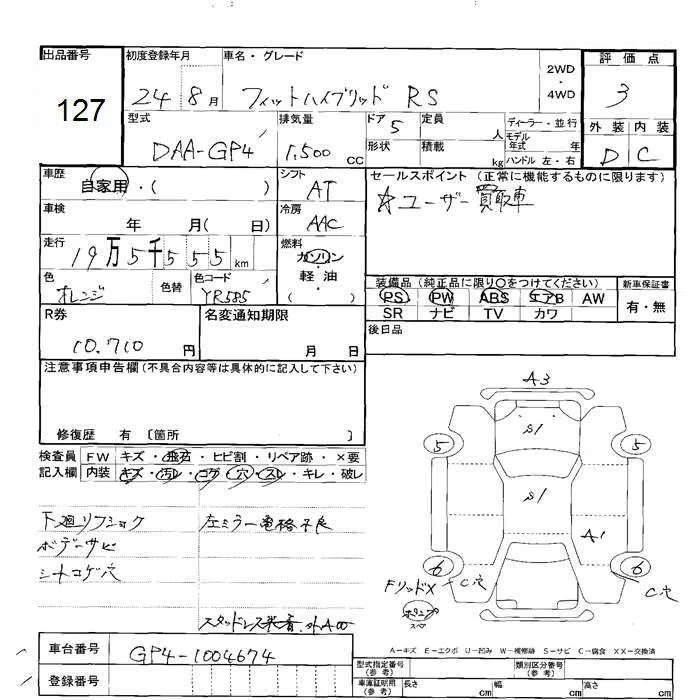 出品番号 初度登録年月 車名・グレード 2WD・4WD 評価点
127 24 8月 フィットハイブリッド RS 3
型式 排気量 ドア 5 定員 人 ディーラー・並行 外装 内装
DAA-GP4 1,500 CC 形状 積載 kg モデル年式 年 ハンドル 左・右 D C
車歴 シフト セールスポイント (正常に機能するものに限ります)
自家用・( ) AT ☆ユーザー買取車
車検 冷房
年 月( 日) AAC
走行 燃料
19万5千555km ガソリン・軽油・( )
色 色替 色コード 装備品 (純正品に限り○をつけてください) 新車保証書
オレンジ YR585 PS PW ABS エアB AW 有・無
SR ナビ TV カワ
R券 名変通知期限 後日品
10.710円 月 日
注意事項申告欄(不具合内容等は具体的に記入して下さい)
修復歴 有 〔箇所 〕
検査員 FW キズ・飛石・ヒビ割・リペア跡・×要
記入欄 内装 キズ・汚レ・コゲ・穴・スレ・キレ・破レ
下廻リフショク 左ミラー電格不良
ボデーサビ
シートコゲ穴
スタッドレス装着
A3
S1
5 5
S1
A1
6 6
FリッドX C穴 C穴
A-キズ E-エクボ U-凹み W-補修跡 S-サビ C-腐食 XX-交換済
車台番号 GP4-1004674
登録番号
型式指定番号(参考) 類別区分番号(参考)
車庫証明用(参考) 長さ cm 幅 cm 高さ cm